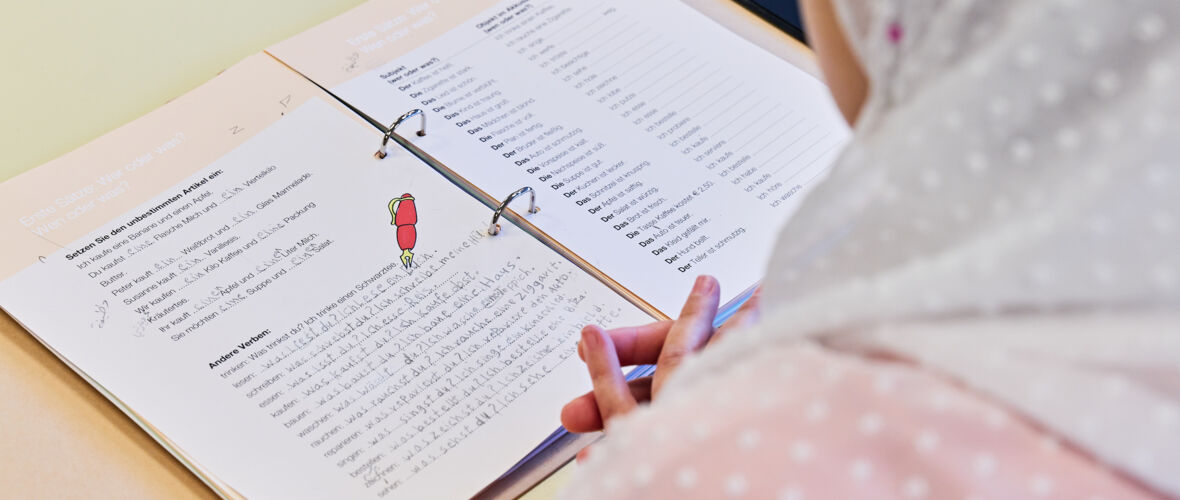 Erste Sätze: Wer oder was?
Wen oder was?
Setzen Sie den unbestimmten Artikel ein:
Ich kaufe eine Banane und einen Apfel.
Du kaufst eine Flasche Milch und ein Viertelkilo
Butter.
Peter kauft ein Weißbrot und ein Glas Marmelade.
Susanne kauft ein Vanilleeis.
Wir kaufen ein Kilo Kaffee und eine Packung
Kräutertee.
Ihr kauft einen Apfel und einen Liter Milch.
Sie möchten eine Suppe und einen Salat.
Andere Verben:
trinken: Was trinkst du? Ich trinke einen Schwarztee.
lesen: was liest du? ich lese ein
schreiben: was schreibst du? ich schreibe meine
essen: was isst du? ich esse Reis.
kaufen: was kaufst du? ich kaufe obst.
bauen: was baust du? ich baue eine Haus.
waschen: was du? ich wasche
rauchen: was rauchst du? ich rauche eine Ziggarit.
reparieren: was du? ich den Auto.
singen: was singst du? ich singe ein
bestellen: was bestellst du? ich bestelle ein
zeichnen: was du? ich ein bild.
sehen: was sehst du? ich sehe eine
Erste Sätze: Wer o
Wen oder was?
Subjekt
(wer oder was?)
Der Kaffee ist heiß.
Die Zigarette ist stark.
Das Lied ist schön.
Die Bäume ist verblüht.
Das Kind ist traurig.
Das Haus ist groß.
Das Mädchen ist blond.
Die Flasche ist voll.
Der Plan ist fertig.
Der Bruder ist fleißig.
Das Auto ist schmutzig.
Die Vorspeise ist kalt.
Die Nachspeise ist süß.
Die Suppe ist gut.
Der Kuchen ist lecker.
Das Schnitzel ist knusprig.
Der Apfel ist saftig.
Der Salat ist würzig.
Das Brot ist frisch.
Die Tasse Kaffee kostet € 2,50.
Das Auto ist teuer.
Das Kleid gefällt mir.
Der Hund bellt.
Der Teller ist schmutzig.
Objekt im Akkusativ
(wen oder was?)
Ich trinke einen Kaffee.
Ich rauche eine Zigarette.
Ich singe
Ich
Ich tröste
Ich besichtige weg.
Ich sehe
Ich hole
Ich zeichne
Ich lobe
Ich putze
Ich esse
Ich esse
Ich bestelle
Ich probiere
Ich bestelle
Ich kaufe
Ich serviere
Ich kaufe
Ich bestelle
Ich habe
Ich kaufe
Ich höre
Ich wasche